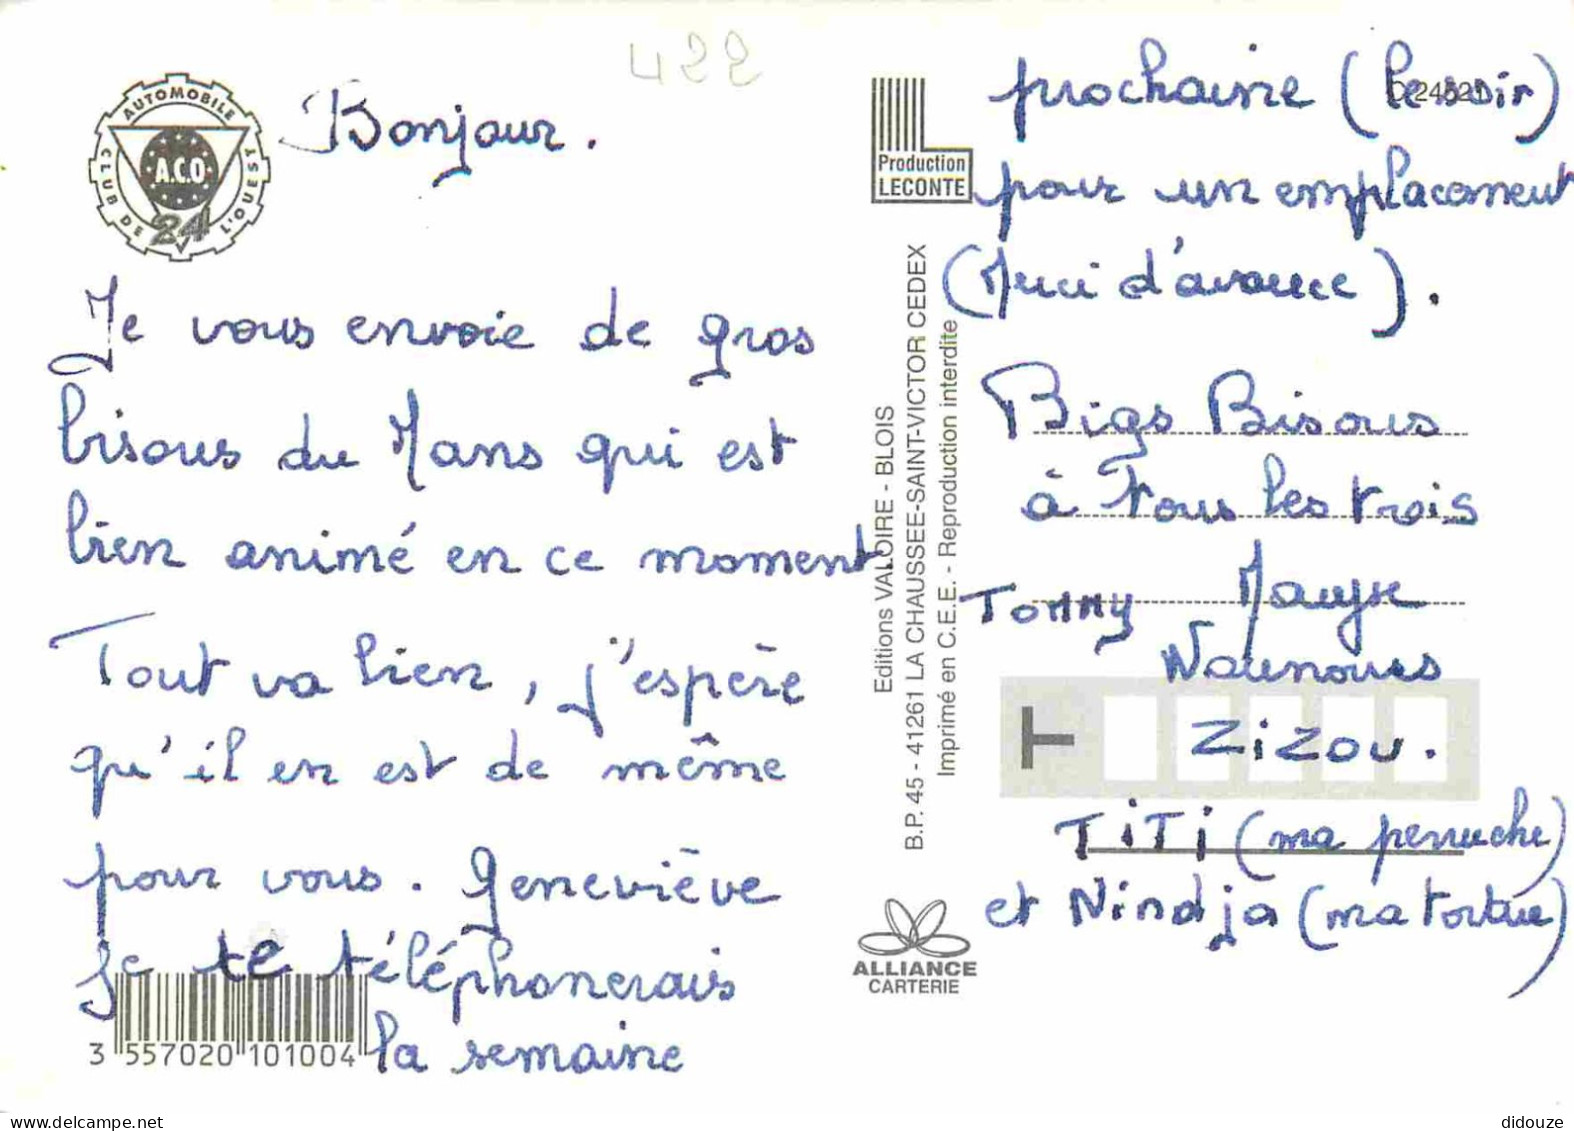 422
AUTOMOBILE
CLUB DE L'OUEST
A.C.O
24
Bonjour.
Je vous envoie de gros
bisous du Mans qui est
bien animé en ce moment
Tout va bien, j'espère
qu'il en est de même
pour vous. Geneviève
je te téléphonerais
la semaine
3 557020 101004
Production
LECONTE
Editions VALOIRE - BLOIS
B.P. 45 - 41261 LA CHAUSSEE-SAINT-VICTOR CEDEX
Imprimé en C.E.E. - Reproduction interdite
ALLIANCE
CARTERIE
prochaine (le soir)
pour un emplacement
(Merci d'avance).
Bigs Bisous
à Tous les trois
Tommy
Nounours
T
ZiZou.
TiTi (ma perruche)
et Nindja (ma tortue)
didouze